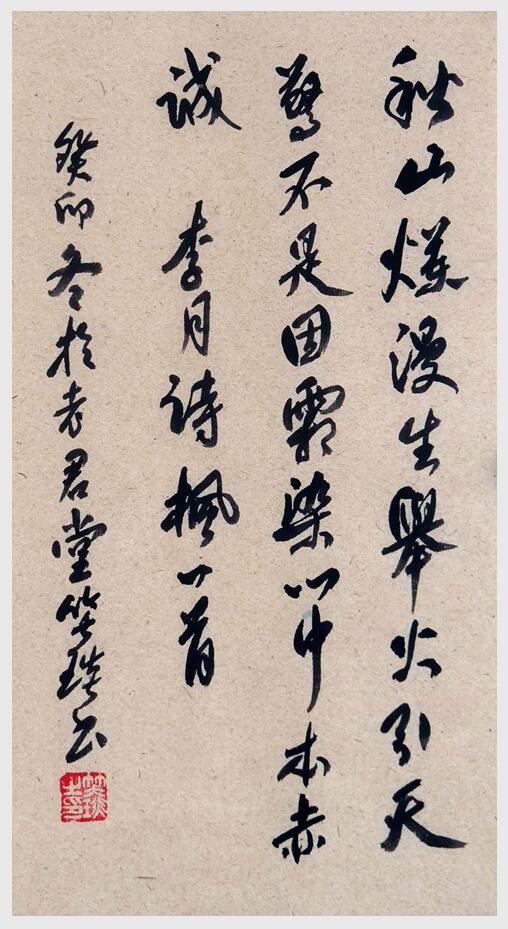 秋山爛漫生舉火引天
驚不是因霜染心中本赤
誠 李月詩楓一首
癸卯冬於老君堂笑琰書